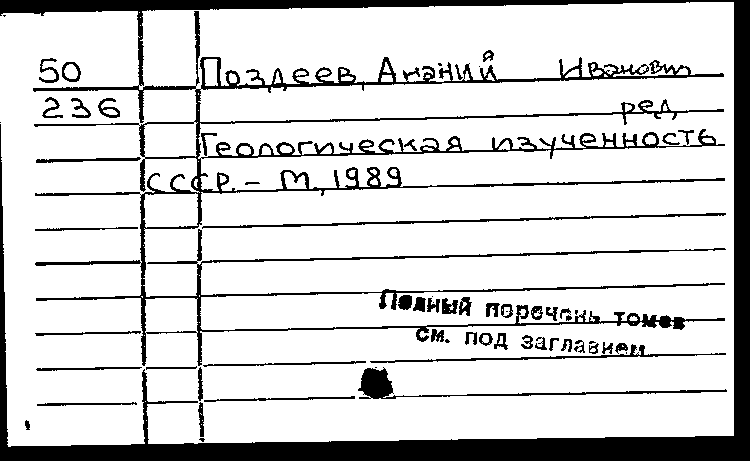 50 Поздеев, Ананий Иванович
236 ред.
Геологическая изученность
СССР. – М., 1989
Полный перечень томов
см. под заглавием